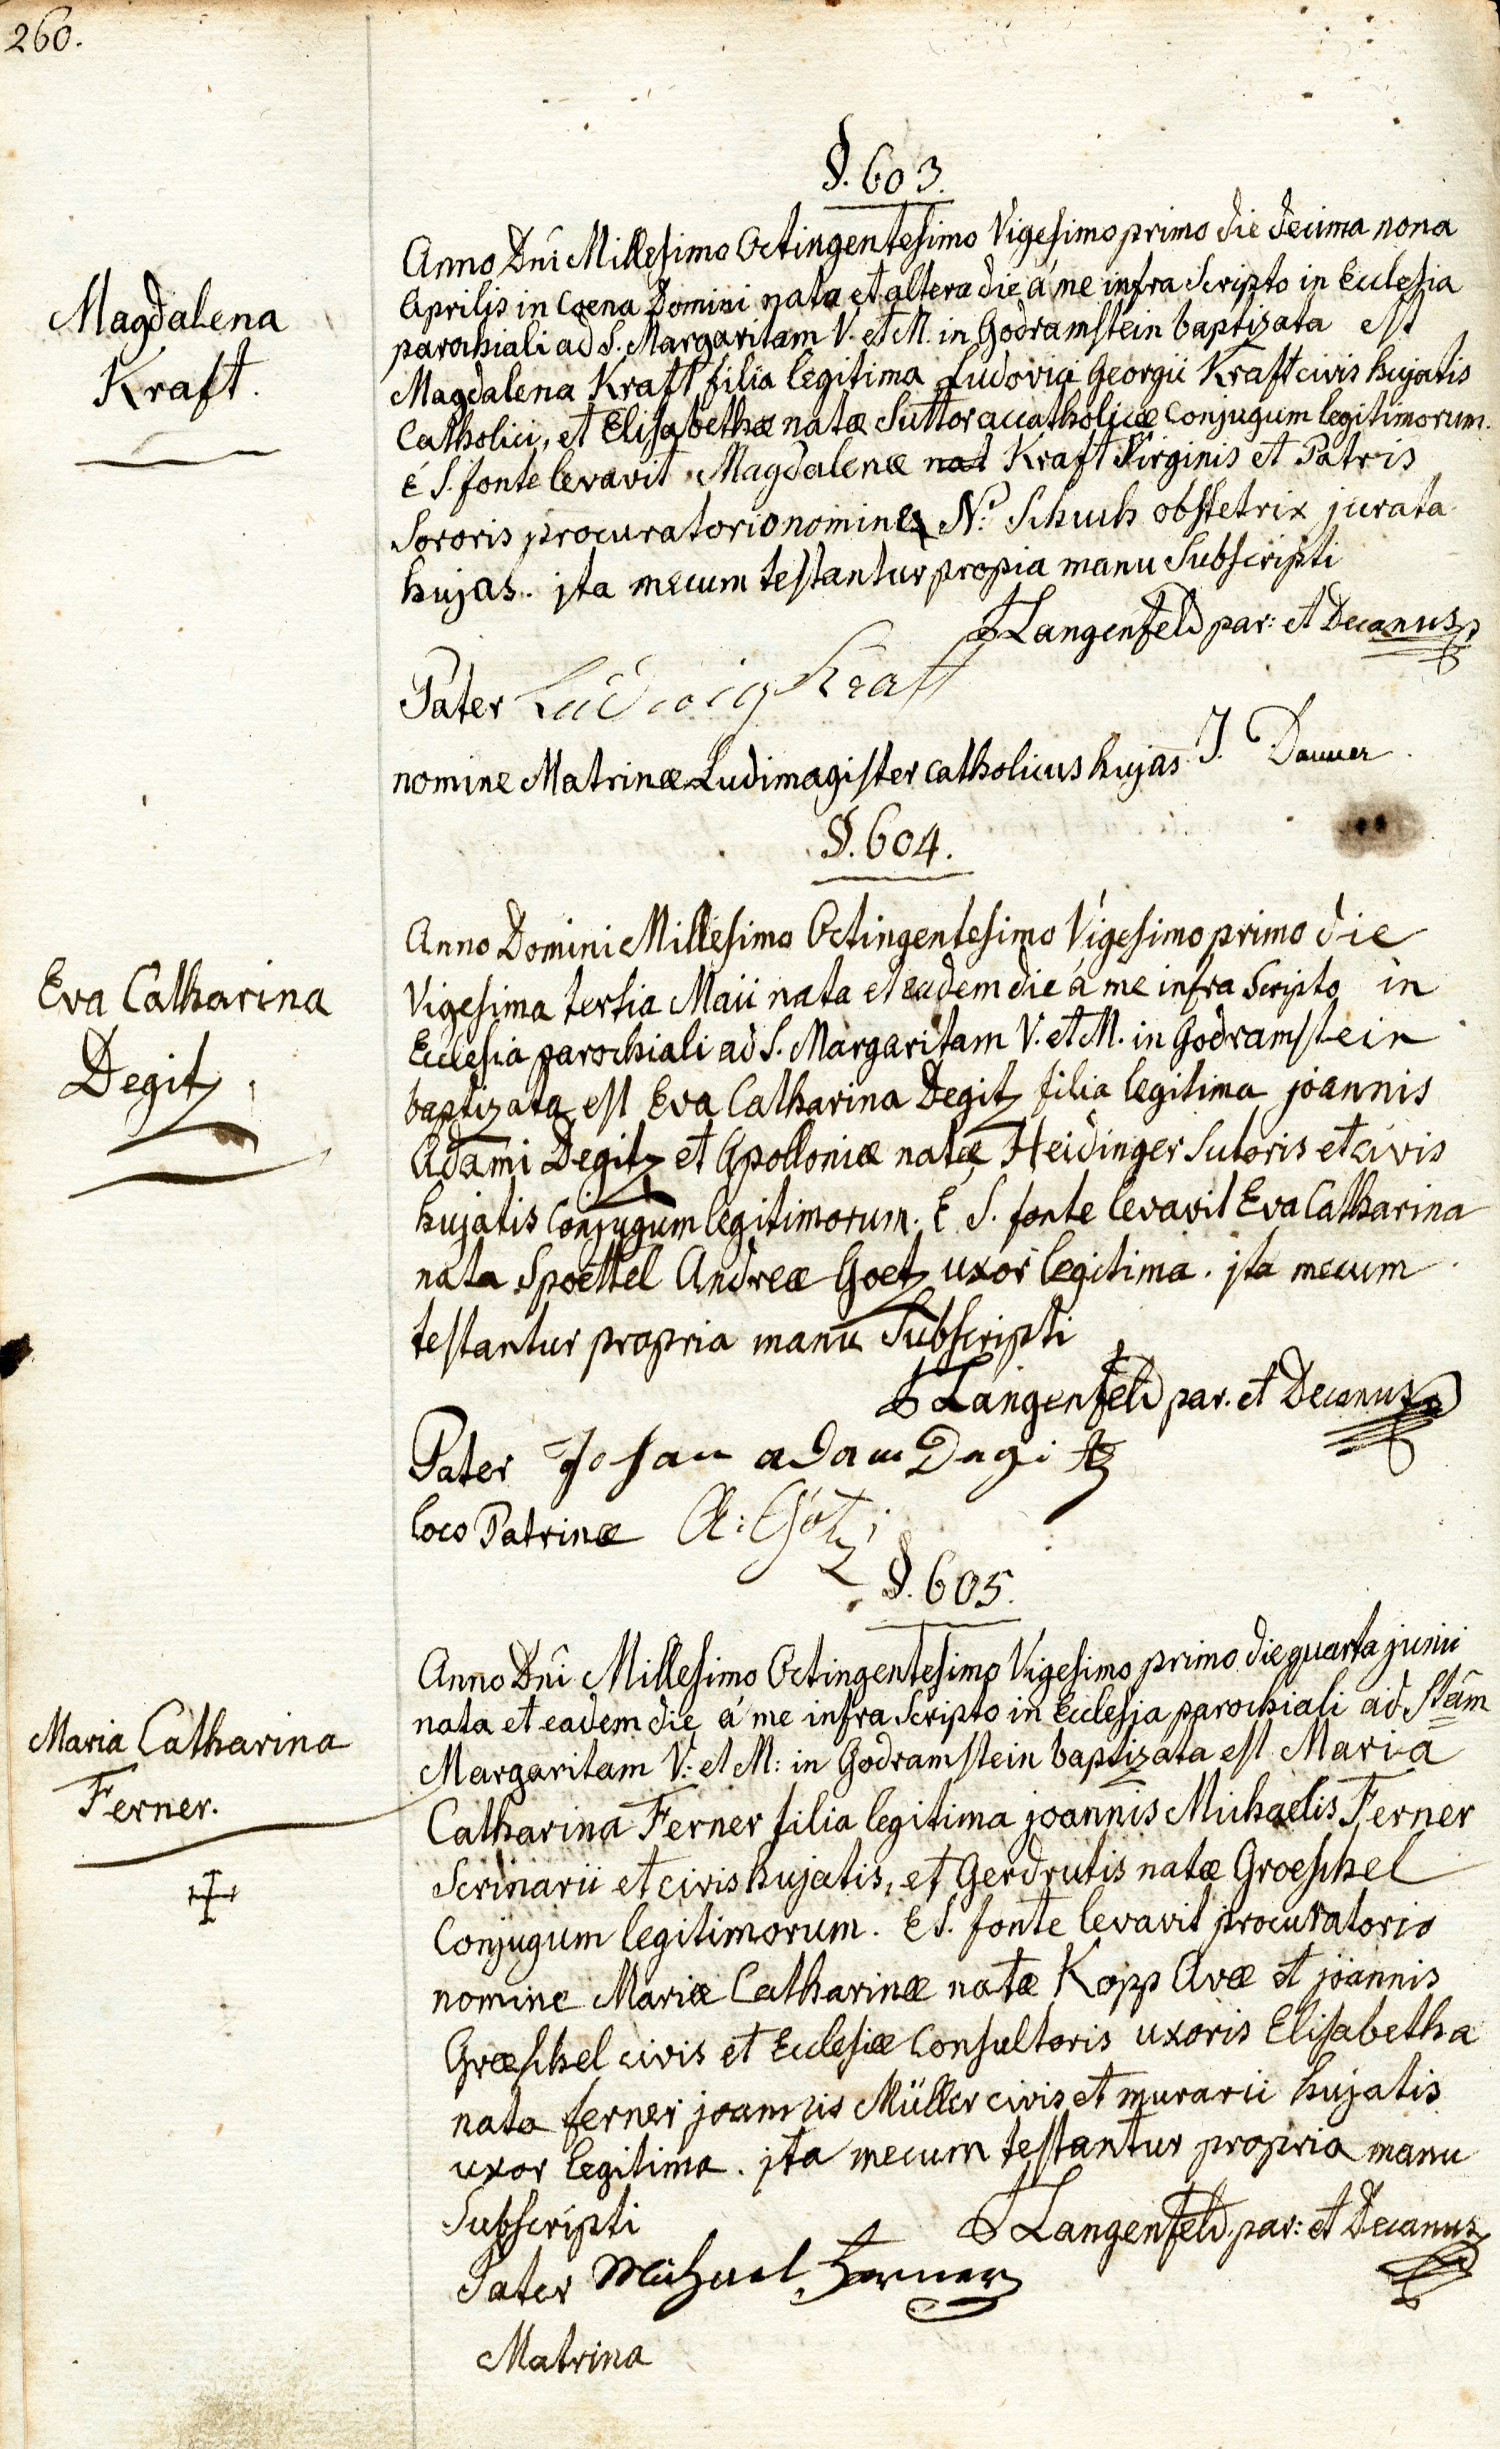 260.
§. 603.
Magdalena
Kraft.
Anno Dni Millesimo Octingentesimo Vigesimo primo die decima nona
Aprilis in Coena Domini nata et altera die á me infra Scripto in Ecclesia
parochiali ad S. Margaritam V. et M. in Godramstein baptizata est
Magdalena Kraft filia legitima Ludovici Georgii Kraft civis hujatis
Catholici, et Elisabethæ natæ Suttor accatholicæ Conjugum legitimorum.
é S. fonte levavit Magdalenæ nat Kraft Virginis et Patris
Sororis procuratorio nomine N: Schuch obstetrix jurata
hujas. jta mecum testantur propia manu Subscripti
Langenfeld par: et Decanus
Pater Ludwig Kraft
nomine Matrinæ Ludimagister catholicus hujas J.
§. 604.
Eva Catharina
Degitz
Anno Domini Millesimo Octingentesimo Vigesimo primo die
Vigesima tertia Maii nata et eadem die á me infra Scripto in
Ecclesia parochiali ad S. Margaritam V. et M. in Godramstein
baptizata est Eva Catharina Degitz filia legitima joannis
Adami Degitz et Apolloniæ natæ Heidinger Sutoris et civis
hujatis Conjugum legitimorum. É S. fonte levavit Eva Catharina
nata Spoettel Andreæ Goetz uxor legitima. jta mecum
testantur propria manu Subscripti
Langenfeld par. et Decanus
Pater Johan adam Degitz
loco Patrinæ A: Götz
§. 605.
Maria Catharina
Ferner.
Anno Dni Millesimo Octingentesimo Vigesimo primo die quarta junii
nata et eadem die á me infra Scripto in Ecclesia parochiali ad Stam
Margaritam V: et M: in Godramstein baptizata est Maria
Catharina Ferner filia legitima joannis Michaelis Ferner
Scrinarii et civis hujatis, et Gerdrutis natæ Groeschel
Conjugum legitimorum. E S. fonte levavit procuratorio
nomine Mariæ Catharinæ natæ Kopp Avæ et joannis
Græschel civis et Ecclesiæ Consultoris uxoris Elisabetha
nata ferner joannis Müller civis et murarii hujatis
uxor legitima. jta mecum testantur propria manu
Subscripti
Langenfeld. par: et Decanus
Pater Michael Ferner
Matrina